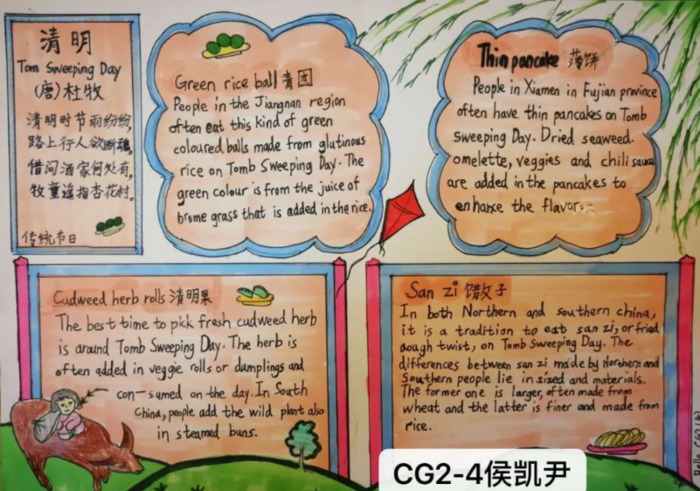 清明
Tom Sweeping Day
(唐)杜牧
清明时节雨纷纷,
路上行人欲断魂,
借问酒家何处有,
牧童遥指杏花村。
传统节日
Green rice ball 青团
People in the Jiangnan region
often eat this kind of green
coloured balls made from glutinous
rice on Tomb Sweeping Day. The
green colour is from the juice of
brome grass that is added in the rice.
Thin pancake 薄饼
People in Xiamen in Fujian province
often have thin pancakes on Tomb
Sweeping Day. Dried seaweed.
omelette, veggies and chili sauce
are added in the pancakes to
enhance the flavor.
Cudweed herb rolls 清明果
The best time to pick fresh cudweed herb
is around Tomb Sweeping Day. The herb is
often added in veggie rolls or dumplings and
con-sumed on the day. In South
China, people add the wild plant also
in steamed buns.
San zi 馓子
In both Northern and southern china,
it is a tradition to eat san zi, or fried
dough twist, on Tomb Sweeping Day. The
differences between san zi made by Northern and
Southern people lie in sized and materials.
The former one is larger, often made from
wheat and the latter is finer and made from
rice.
CG2-4侯凯尹